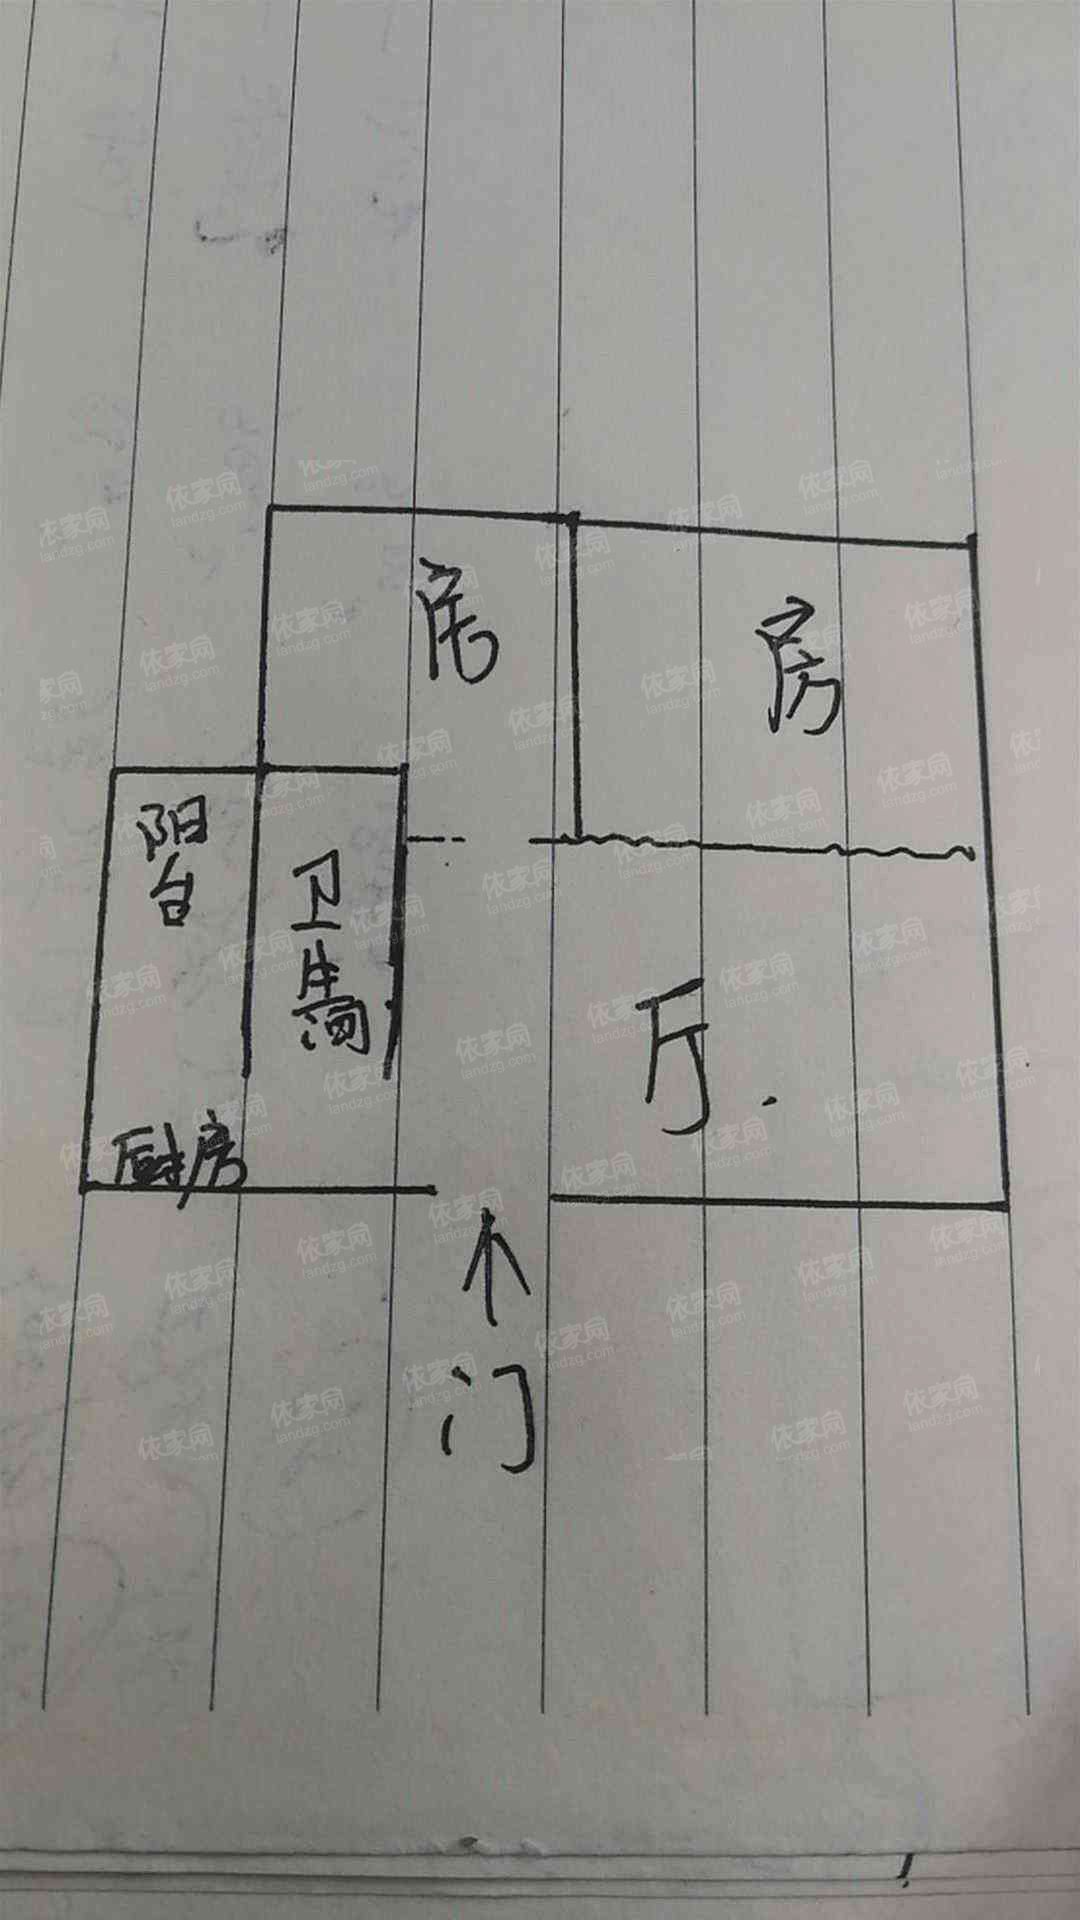 房
房
阳台
卫生间
厅
厨房
门
依家网
landzg.com